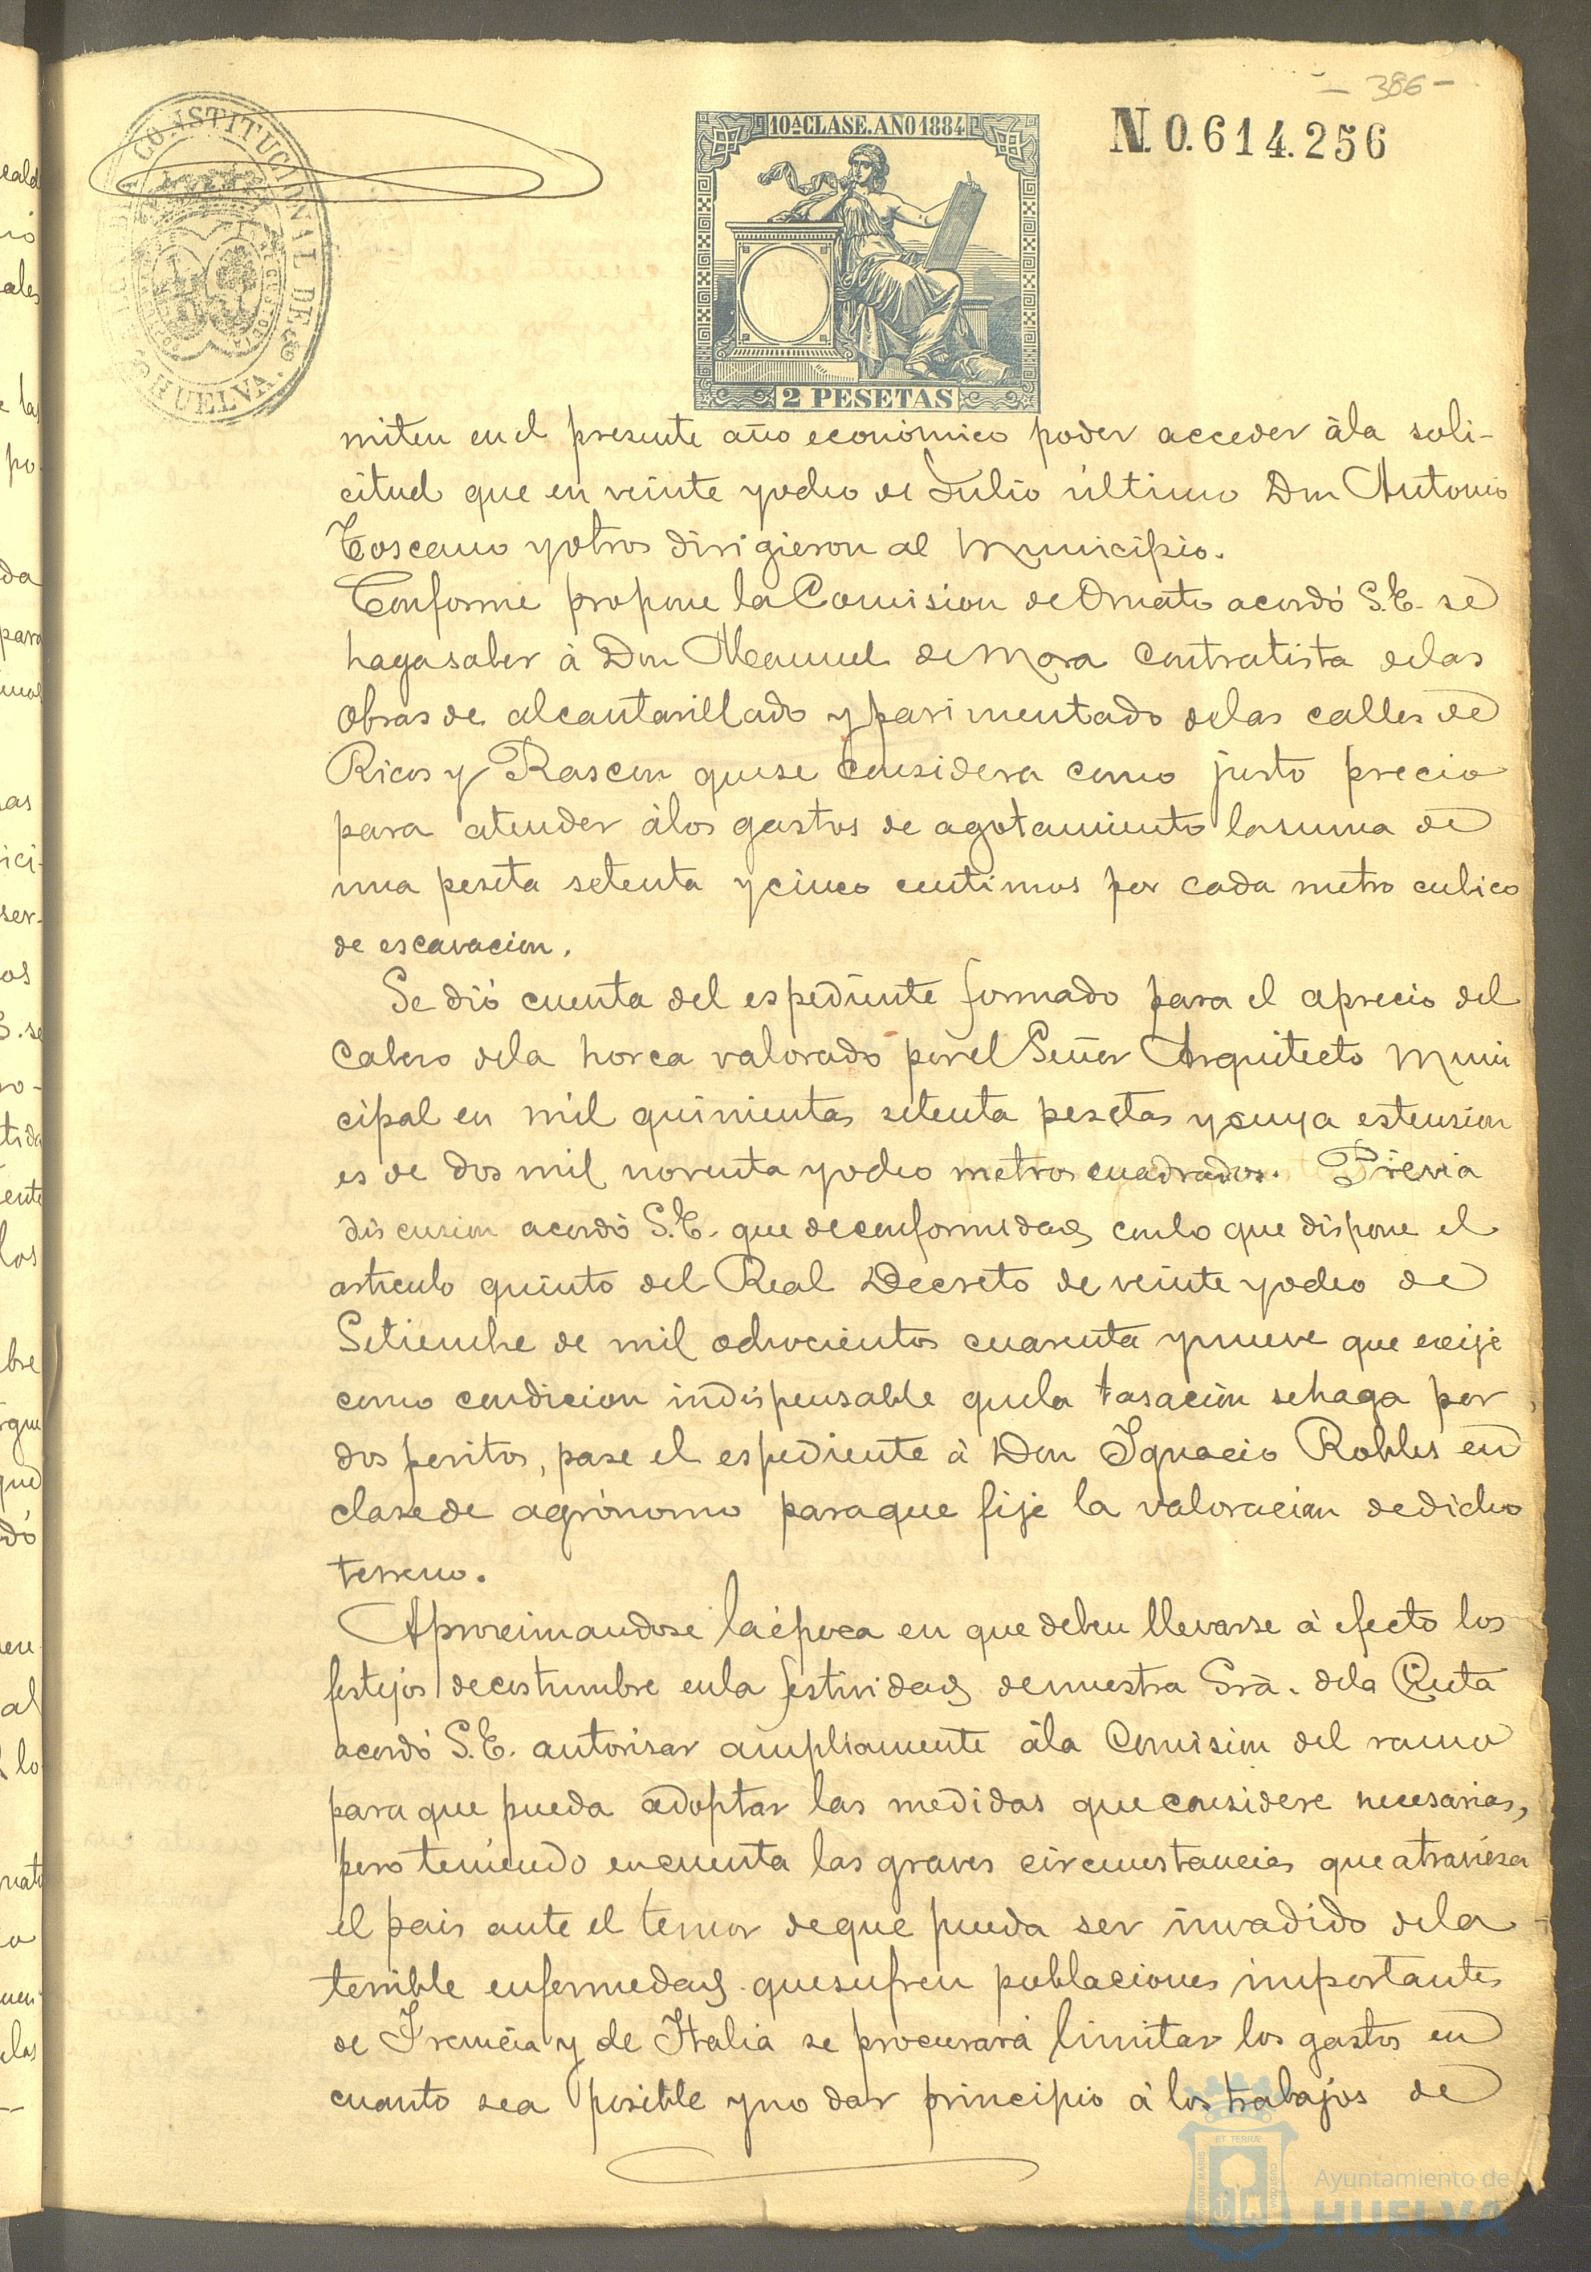 - 386 -
10ª CLASE. AÑO 1884
N. 0.614.256
CONSTITUCIONAL DE HUELVA.
2 PESETAS
miten en el presente año económico poder acceder á la soli-
citud que en veinte y ocho de Julio último Don Antonio
Toscano y otros dirigieron al Municipio.
Conforme propone la Comision de Ornato acordó S.E. se
haga saber á Don Manuel de Mora contratista de las
obras de alcantarillado y pavimentado de las calles de
Ricos y Rascon que se considera como justo precio
para atender á los gastos de agotamiento la suma de
una peseta setenta y cinco centimos por cada metro cubico
de escavacion.
Se dió cuenta del espediente formado para el aprecio del
Cabezo de la horca valorado por el Señor Arquitecto Muni
cipal en mil quinientas setenta pesetas y cuya estension
es de dos mil noventa y ocho metros cuadrados. Prévia
discusion acordó S.E. que de conformidad con lo que dispone el
articulo quinto del Real Decreto de veinte y ocho de
Setiembre de mil ochocientos cuarenta y nueve que exije
como condicion indispensable que la tasacion se haga por
dos peritos, pase el espediente á Don Ignacio Robles en
clase de agrónomo para que fije la valoracion de dicho
terreno.
Aproximandose la época en que deben llevarse á efecto los
festejos de costumbre en la festividad de nuestra Srà. de la Cinta
acordó S.E. autorisar ampliamente á la Comision del ramo
para que pueda adoptar las medidas que considere necesarias,
pero teniendo en cuenta las graves circunstancias que atraviesa
el pais ante el temor de que pueda ser invadido de la
terrible enfermedad que sufren poblaciones importantes
de Francia y de Italia se procurará limitar los gastos en
cuanto sea posible y no dar principio á los trabajos de
Ayuntamiento de
HUELVA